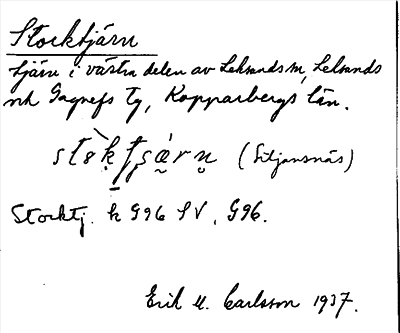 Stocktjärn
tjärn i västra delen av Leksands sn, Leksands
och Gagnefs tg, Kopparbergs län.
(Sitjansnäs)
Stocktj. k G96 SV, G96.
Erik M. Carlsson 1937.